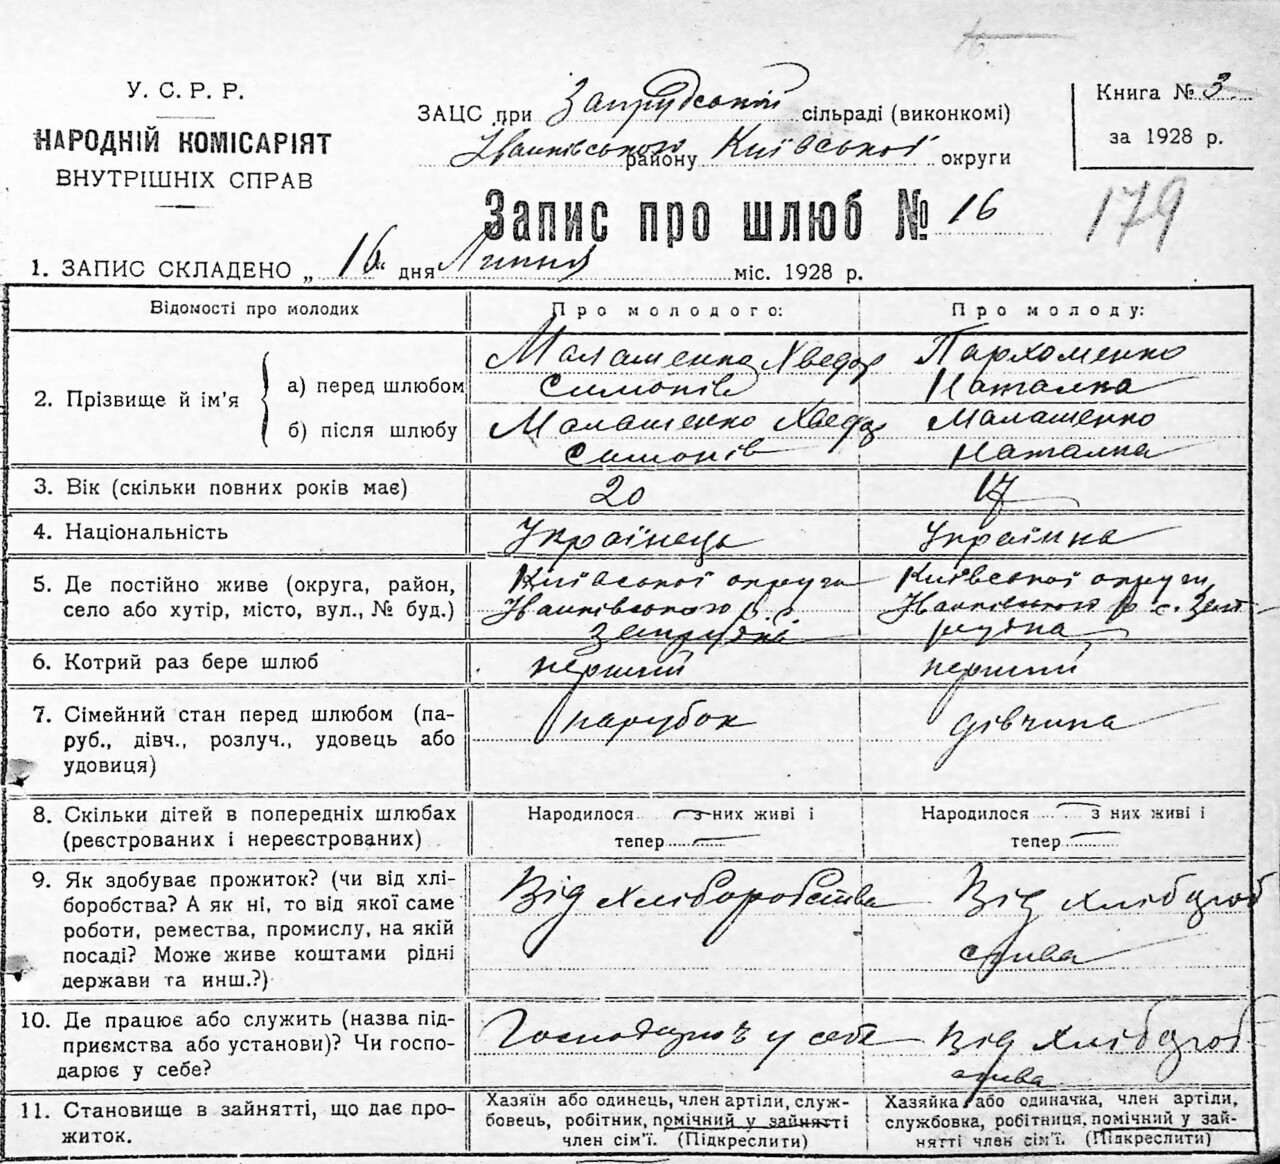 У. С. Р. Р.
НАРОДНІЙ КОМІСАРІЯТ
ВНУТРІШНІХ СПРАВ
ЗАЦС при Запрудській сільраді (виконкомі)
Іванківського району Київської округи
Книга № 3.
за 1928 р.
179
Запис про шлюб № 16
1. ЗАПИС СКЛАДЕНО „ 16 " дня Липня міс. 1928 р.
Відомості про молодих
Про молодого:
Про молоду:
2. Прізвище й ім'я
а) перед шлюбом
Малашенко Хведор
Симонів
Пархоменко
Наталка
б) після шлюбу
Малашенко Хведор
Симонів
Малашенко
Наталка
3. Вік (скільки повних років має)
20
17
4. Національність
Українець
Українка
5. Де постійно живе (округа, район,
село або хутір, місто, вул., № буд.)
Київської округи
Іванківського р. с.
Запрудка
Київської округи
Іванківського р. с. Зап-
рудка
6. Котрий раз бере шлюб
перший
перший
7. Сімейний стан перед шлюбом (па-
руб., дівч., розлуч., удовець або
удовиця)
парубок
дівчина
8. Скільки дітей в попередніх шлюбах
(реєстрованих і нереєстрованих)
Народилося — з них живі і
тепер —
Народилося — з них живі і
тепер —
9. Як здобуває прожиток? (чи від хлі-
боробства? А як ні, то від якої саме
роботи, ремества, промислу, на якій
посаді? Може живе коштами рідні
держави та инш.?)
Від хліборобства
Від хлібороб
ства
10. Де працює або служить (назва під-
приємства або установи)? Чи госпо-
дарює у себе?
у себе
Від хлібороб
ства
11. Становище в зайнятті, що дає про-
житок.
Хазяїн або одинець, член артіли, служ-
бовець, робітник, помічний у зайнятті
член сім'ї. (Підкреслити)
Хазяйка або одиначка, член артіли,
службовка, робітниця, помічний у зай-
нятті член сім'ї. (Підкреслити)